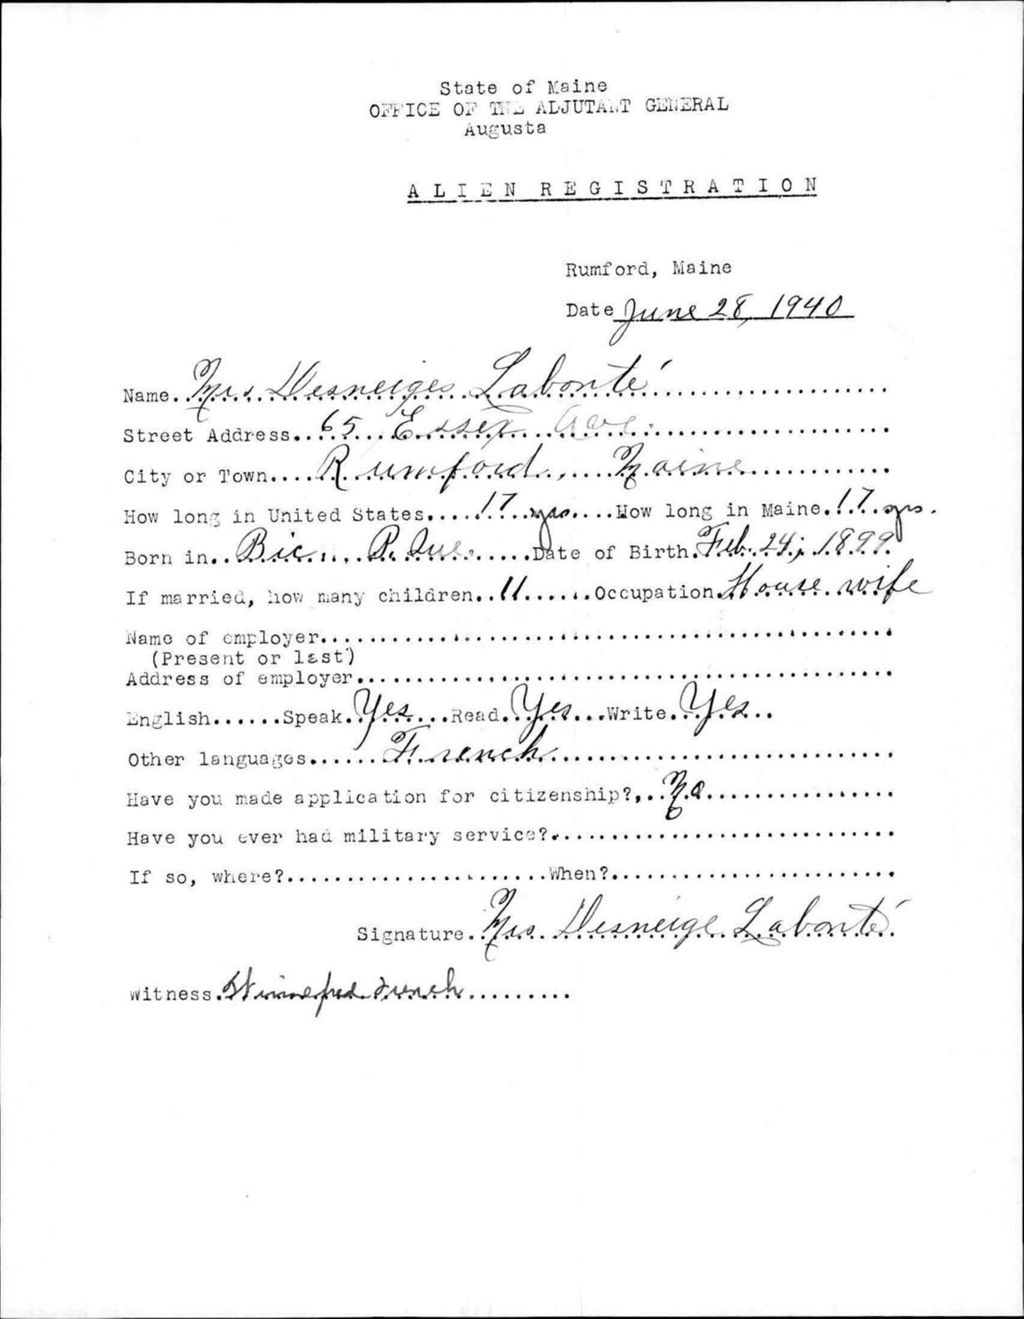 State of Maine
OFFICE OF THE ADJUTANT GENERAL
Augusta
ALIEN REGISTRATION
Rumford, Maine
Date June 28, 1940
Name. Mrs. Desneiges Labonté
Street Address. 65 Essex Ave.
City or Town. Rumford, Maine
How long in United States. 17 yrs. How long in Maine. 17 yrs.
Born in. Bic, P. Que. Date of Birth. Feb. 24, 1899
If married, how many children. 11 Occupation. House wife
Name of employer
(Present or last)
Address of employer
English Speak. Yes Read. Yes Write. Yes
Other languages French
Have you made application for citizenship? No
Have you ever had military service?
If so, where? When?
Signature. Mrs. Desneige Labonté
Witness. Winnefred French